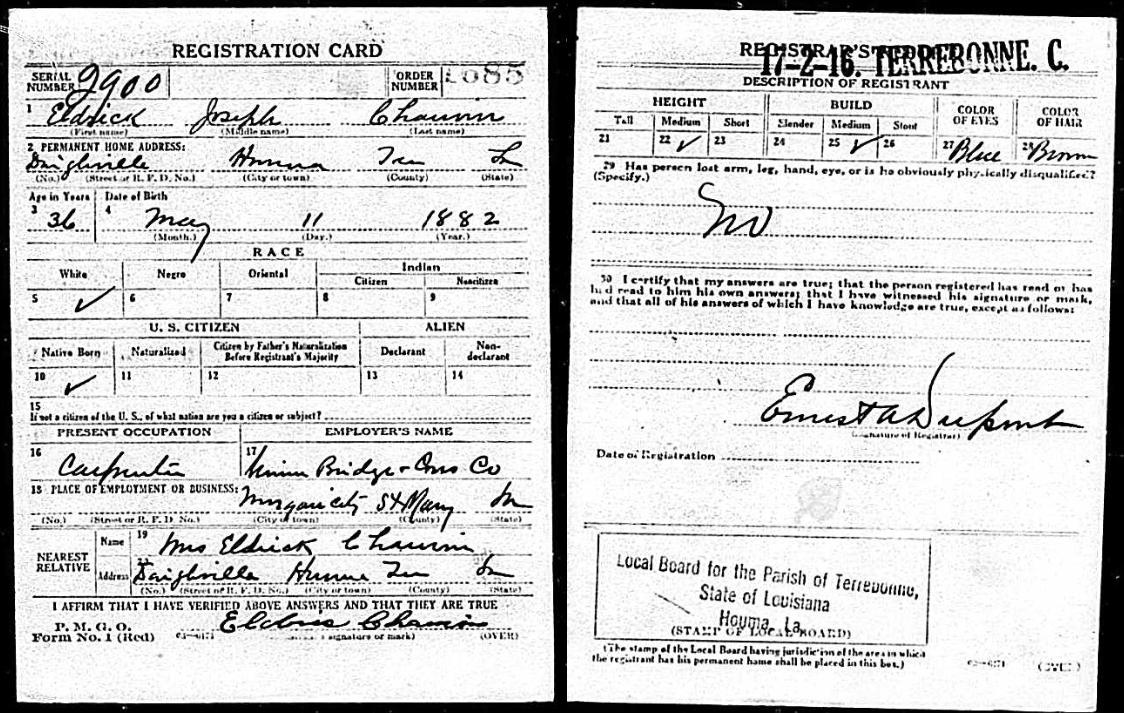 REGISTRATION CARD
SERIAL NUMBER 2900 ORDER NUMBER 1685
1 Eldrick Joseph Chauvin
(First name) (Middle name) (Last name)
2 PERMANENT HOME ADDRESS:
Daigleville Houma Ter La
(No.) (Street or R. F. D. No.) (City or town) (County) (State)
Age in Years Date of Birth
3 36 4 May 11 1882
(Month.) (Day.) (Year.)
RACE
White Negro Oriental Indian
Citizen Noncitizen
5 ✓ 6 7 8 9
U. S. CITIZEN ALIEN
Native Born Naturalized Citizen by Father's Naturalization Before Registrant's Majority Declarant Non-declarant
10 ✓ 11 12 13 14
15
If not a citizen of the U. S., of what nation are you a citizen or subject?
PRESENT OCCUPATION EMPLOYER'S NAME
16 Carpenter 17 Union Bridge + Cons Co
18 PLACE OF EMPLOYMENT OR BUSINESS:
Morgan City St Mary La
(No.) (Street or R. F. D. No.) (City or town) (County) (State)
NEAREST RELATIVE
Name 19 Mrs Eldrick Chauvin
Address Daigleville Houma Ter La
(No.) (Street or R. F. D. No.) (City or town) (County) (State)
I AFFIRM THAT I HAVE VERIFIED ABOVE ANSWERS AND THAT THEY ARE TRUE
P. M. G. O.
Form No. 1 (Red) 03-6171 Chauvin
(signature or mark) (OVER)
REGISTRAR'S
17-2-16. TERREBONNE. C.
DESCRIPTION OF REGISTRANT
HEIGHT BUILD COLOR OF EYES COLOR OF HAIR
Tall Medium Short Slender Medium Stout
21 22 ✓ 23 24 25 ✓ 26 27 Blue 28 Brown
29 Has person lost arm, leg, hand, eye, or is he obviously physically disqualified?
(Specify.)
No
30 I certify that my answers are true; that the person registered has read or has
had read to him his own answers; that I have witnessed his signature or mark,
and that all of his answers of which I have knowledge are true, except as follows:
Ernest A Dupont
(Signature of Registrar)
Date of Registration
Local Board for the Parish of Terrebonne,
State of Louisiana
Houma, La.
(STAMP OF LOCAL BOARD)
(The stamp of the Local Board having jurisdiction of the area in which
the registrant has his permanent home shall be placed in this box.)
03-6171 (OVER)